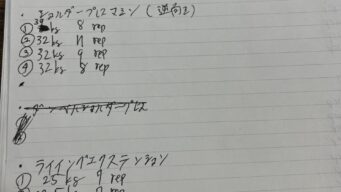 ・ショルダープレスマシン(逆向き)
① 39kg 8 rep
② 32kg 11 rep
③ 32kg 9 rep
④ 32kg 8 rep
・
・ダンベルショルダープレス
・ライイングエクステンション
① 25kg 9 rep